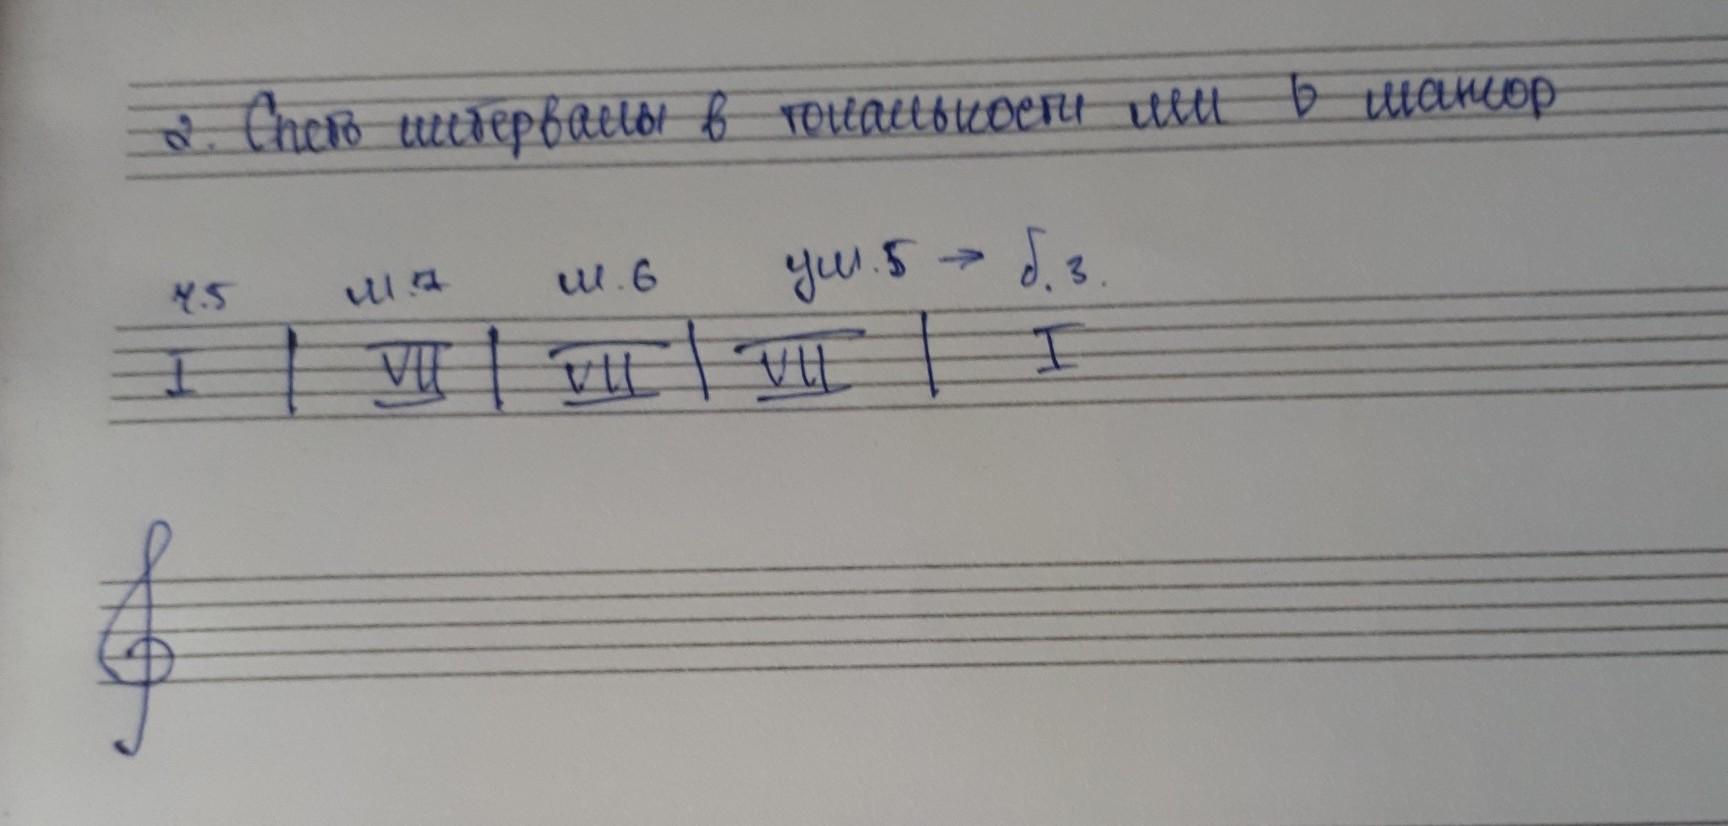 2. Спеть интервалы в тональности ми b мажор
ч.5 м.7 м.6 ум.5 → б.3.
I | VII | VII | VII | I